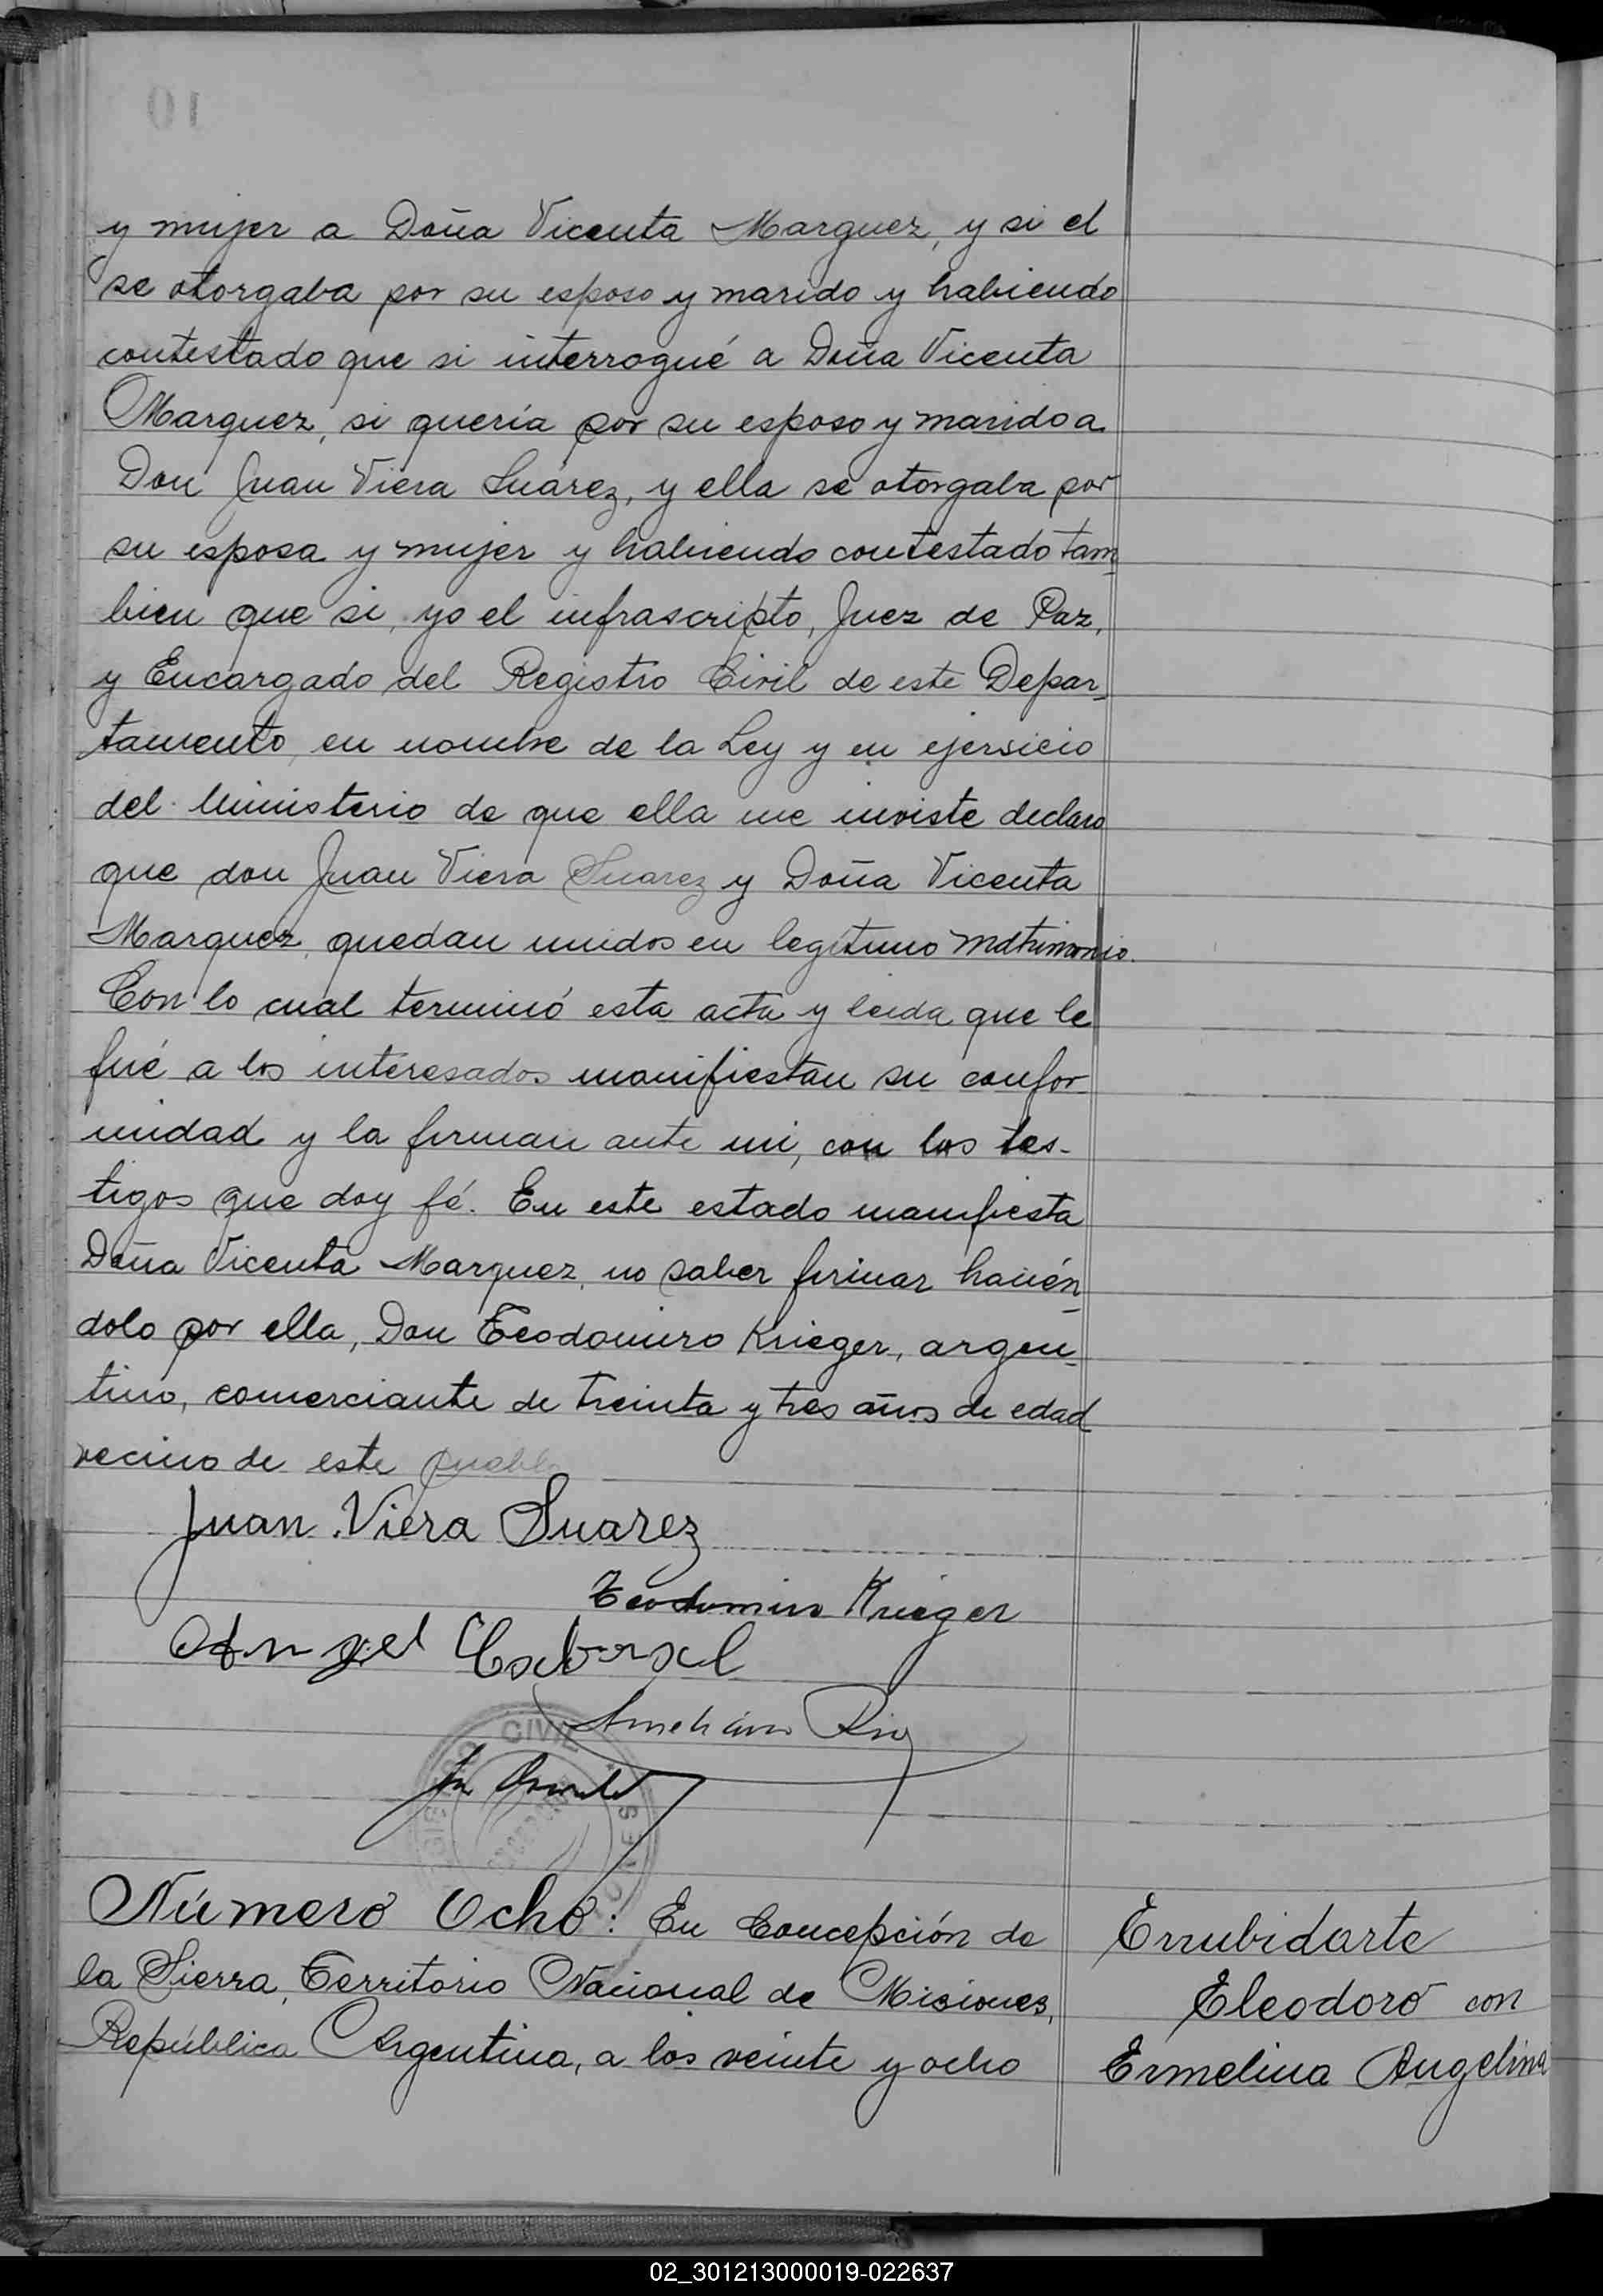 y mujer a Doña Vicenta Marquez, y si el
se otorgaba por su esposo y marido y habiendo
contestado que si interrogué a Doña Vicenta
Marquez, si quería por su esposo y marido a
Don Juan Viera Suárez, y ella se otorgaba por
su esposa y mujer y habiendo contestado tam
bien que si, yo el infrascripto, Juez de Paz,
y Encargado del Registro Civil de este Depar
tamento, en nombre de la Ley y en ejersicio
del Ministerio de que ella me inviste declaro
que don Juan Viera Suarez y Doña Vicenta
Marquez, quedan unidos en legítimo matrimonio.
Con lo cual terminó esta acta y leida que le
fué a los interesados manifiestan su confor
midad y la firman ante mi, con los tes-
tigos que doy fé. En este estado manifiesta
Doña Vicenta Marquez, no saber firmar hacién
dolo por ella, Don Teodomiro Krieger, argen
tino, comerciante de treinta y tres años de edad
vecino de este pueblo
Juan Viera Suarez
Teodomiro Krieger
Angel Cabral
CIVIL
Número Ocho: En Concepción de
la Sierra, Territorio Nacional de Misiones,
República Argentina, a los veinte y ocho
Errubidarte
Eleodoro con
Ermelina Angelina
02_301213000019-022637